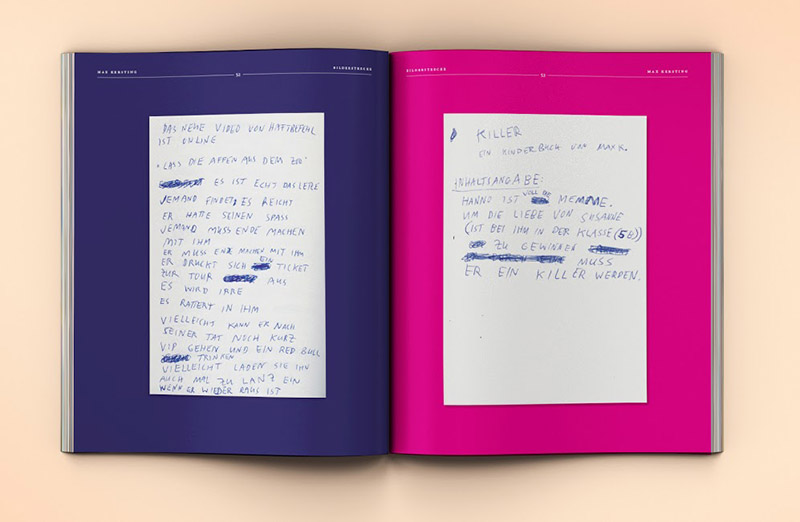 MAX KERSTING
BILDERSTRECKE
DAS NEUE VIDEO VON HAFTBEFEHL
IST ONLINE
"LASS DIE AFFEN AUS DEM ZOO"
ES IST ECHT DAS LETZE
JEMAND FINDET ES REICHT
ER HATTE SEINEN SPASS
JEMAND MUSS ENDE MACHEN
MIT IHM
ER MUSS ENDE MACHEN MIT IHM
ER DRUCKT SICH EIN TICKET
ZUR TOUR AUS
ES WIRD IRRE
ES RATTERT IN IHM
VIELLEICHT KANN ER NACH
SEINER TAT NOCH KURZ
VIP GEHEN UND EIN RED BULL
TRINKEN
VIELLEICHT LADEN SIE IHN
AUCH MAL ZU LANZ EIN
WENN ER WIEDER RAUS IST
BILDERSTRECKE
53
MAX KERSTING
KILLER
EIN KINDERBUCH VON MAX K.
INHALTSANGABE:
HANNO IST VOLL DIE MEMME.
UM DIE LIEBE VON SUSANNE
(IST BEI IHM IN DER KLASSE (5b))
ZU GEWINNEN
MUSS
ER EIN KILLER WERDEN.